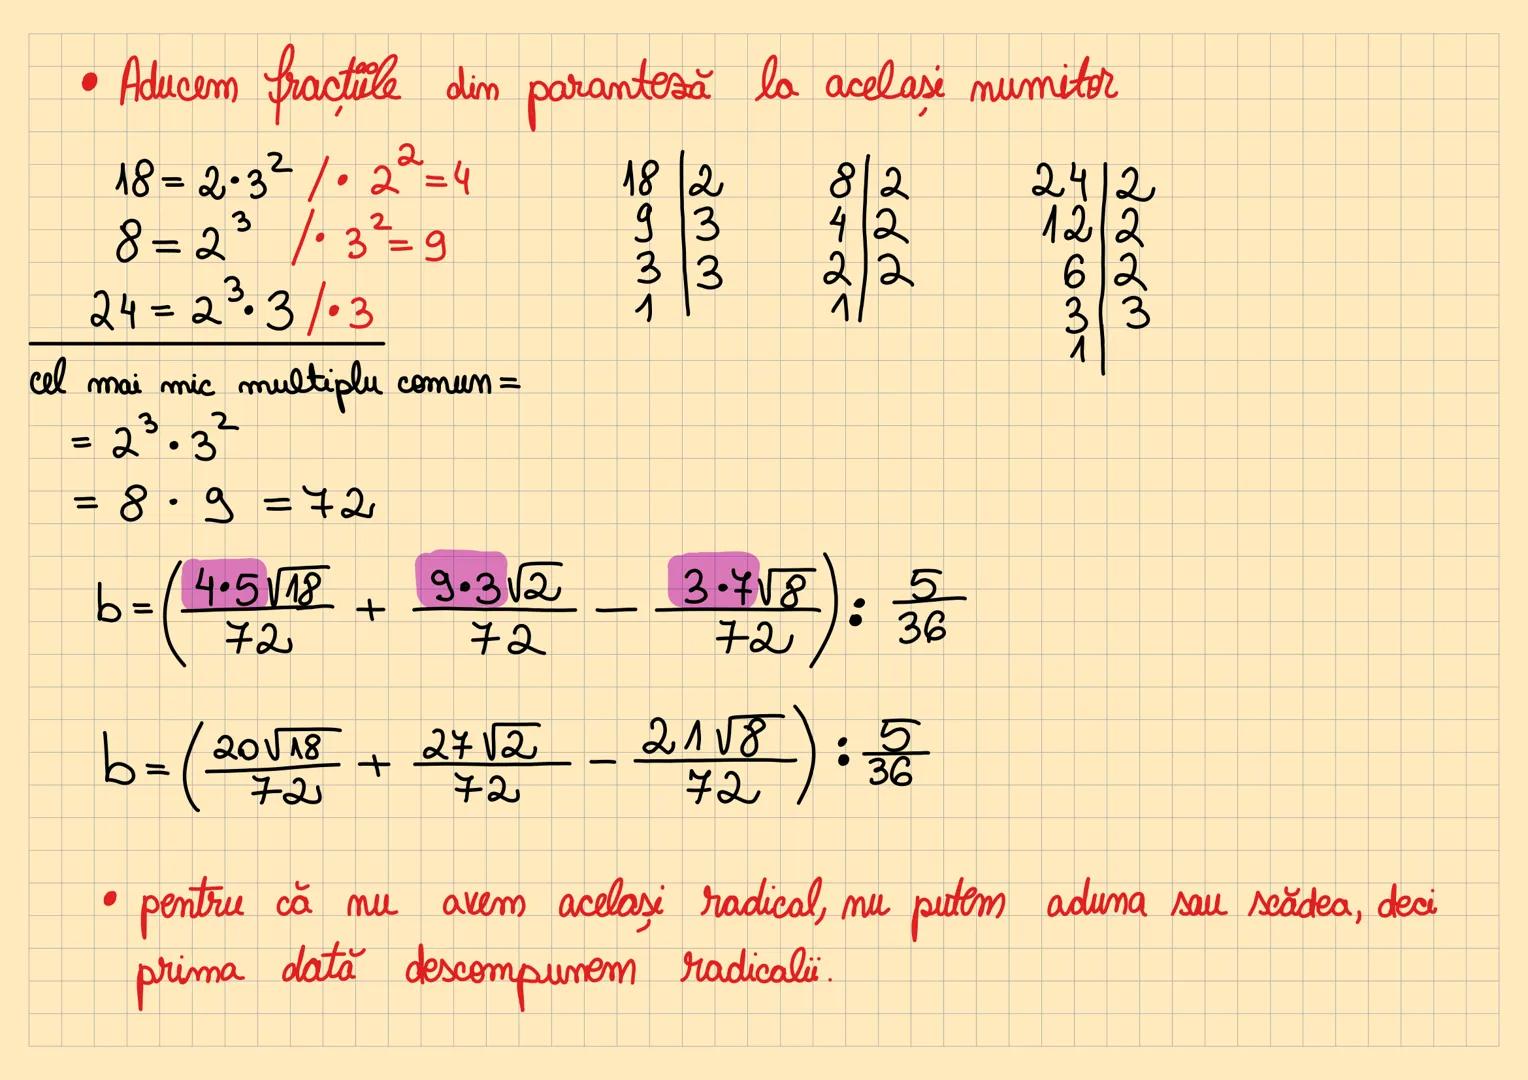 • Aducem fracțiile din paranteză la același numitor
18 = 2·3² /· 2² = 4
8 = 2³ /· 3² = 9
24 = 2³·3 /·3
18 | 2
9 | 3
3 | 3
1 |
8 | 2
4 | 2
2 | 2
1 |
24 | 2
12 | 2
6 | 2
3 | 3
1 |
cel mai mic multiplu comun =
= 2³ · 3²
= 8 · 9 = 72
b = (4·5√18/72 + 9·3√2/72 − 3·7√8/72) : 5/36
b = (20√18/72 + 27√2/72 − 21√8/72) : 5/36
• pentru că nu avem același radical, nu putem aduna sau scădea, deci
prima dată descompunem radicalii.